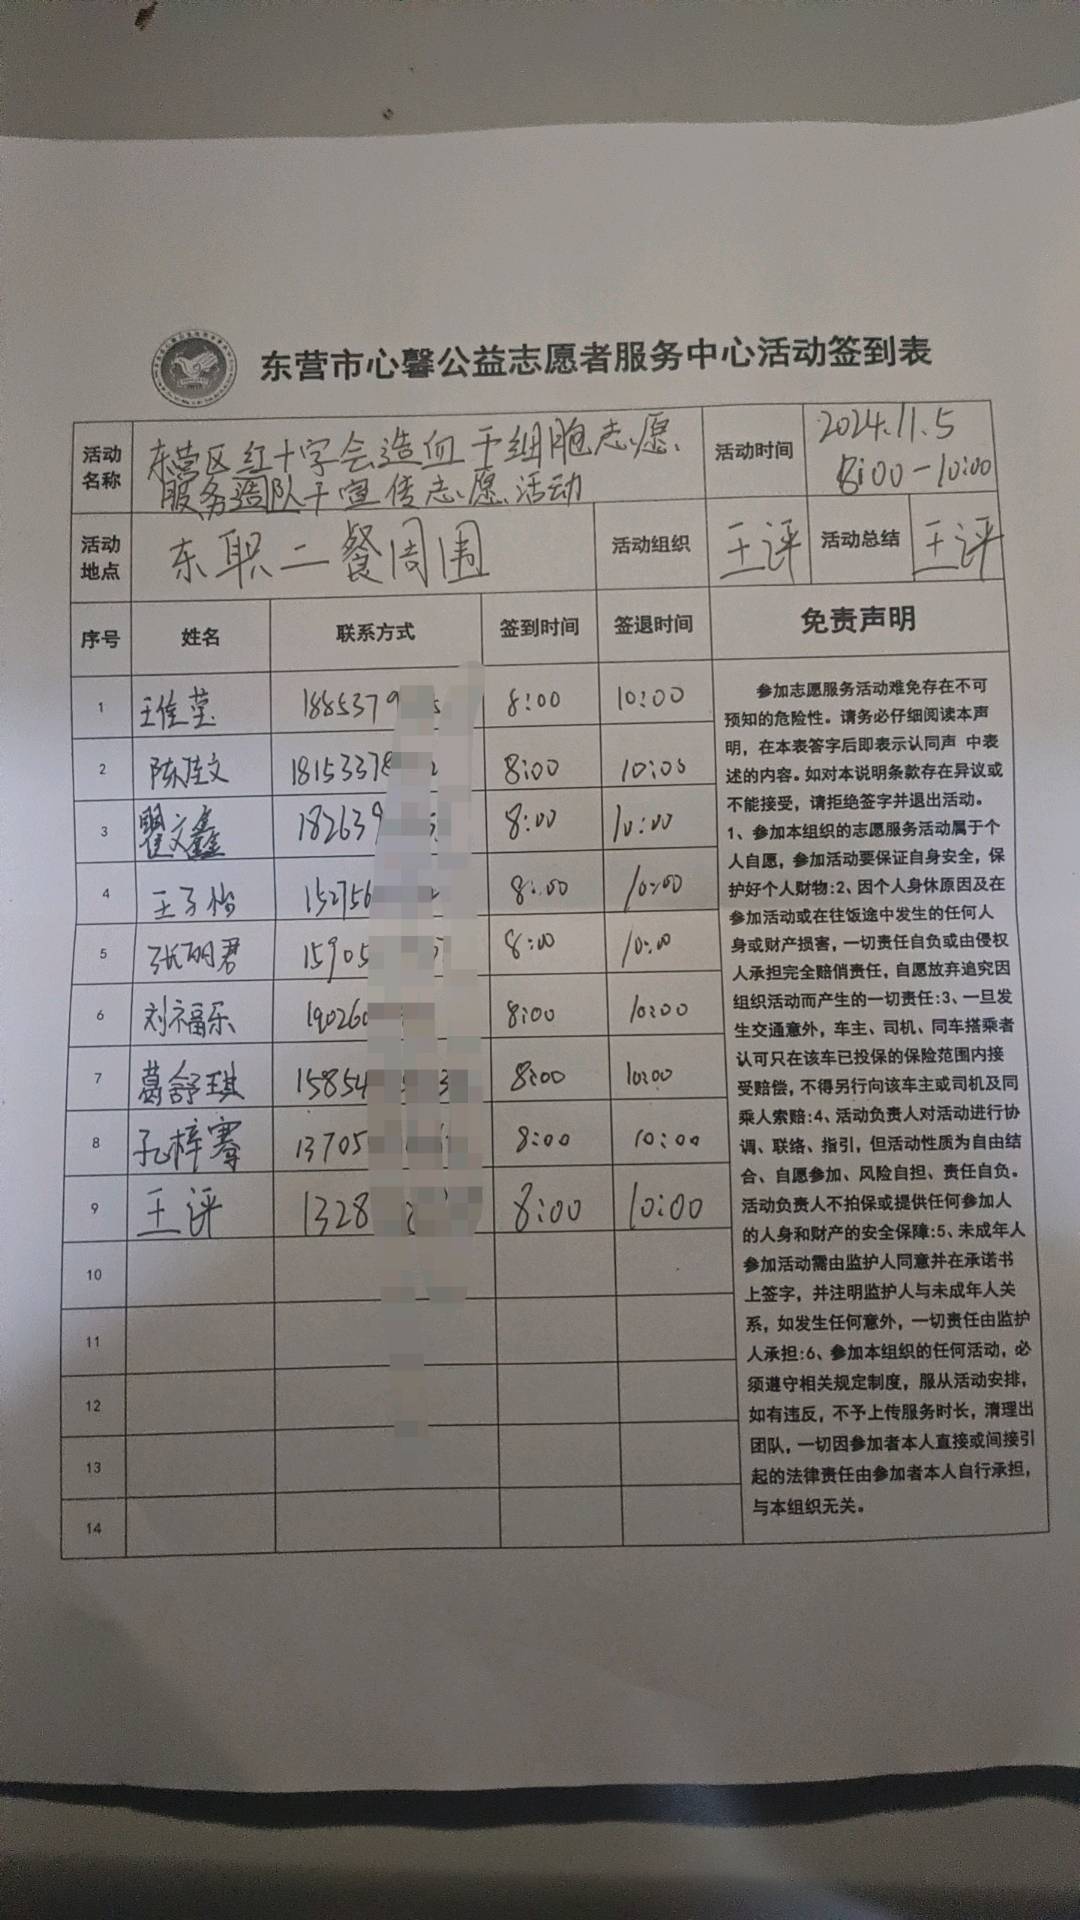 东营市心馨公益志愿者服务中心活动签到表
活动名称 东营区红十字会造血干细胞志愿
服务团队干宣传志愿活动
活动时间 2024.11.5
8:00-10:00
活动地点 东职二餐周围 活动组织 王评 活动总结 王评
序号 姓名 联系方式 签到时间 签退时间 免责声明
1 王佳莹 1885379 8:00 10:00
2 陈佳文 18153378 8:00 10:00
3 瞿文鑫 182639 8:00 10:00
4 王子怡 152756 8:00 10:00
5 张明君 15905 8:00 10:00
6 刘福乐 190260 8:00 10:00
7 葛舒琪 15854 8:00 10:00
8 孔梓骞 13705 8:00 10:00
9 王评 1328 8:00 10:00
10
11
12
13
14
参加志愿服务活动难免存在不可
预知的危险性。请务必仔细阅读本声
明，在本表答字后即表示认同声 中表
述的内容。如对本说明条款存在异议或
不能接受，请拒绝签字并退出活动。
1、参加本组织的志愿服务活动属于个
人自愿，参加活动要保证自身安全，保
护好个人财物:2、因个人身休原因及在
参加活动或在往饭途中发生的任何人
身或财产损害，一切责任自负或由侵权
人承担完全赔俏责任，自愿放弃追究因
组织活动而产生的一切责任:3、一旦发
生交通意外，车主、司机、同车搭乘者
认可只在该车已投保的保险范围内接
受赔偿，不得另行向该车主或司机及同
乘人索赔:4、活动负责人对活动进行协
调、联络、指引，但活动性质为自由结
合、自愿参加、风险自担、责任自负。
活动负责人不拍保或提供任何参加人
的人身和财产的安全保障:5、未成年人
参加活动需由监护人同意并在承诺书
上签字，并注明监护人与未成年人关
系，如发生任何意外，一切责任由监护
人承担:6、参加本组织的任何活动，必
须遵守相关规定制度，服从活动安排，
如有违反，不予上传服务时长，清理出
团队，一切因参加者本人直接或间接引
起的法律责任由参加者本人自行承担，
与本组织无关。